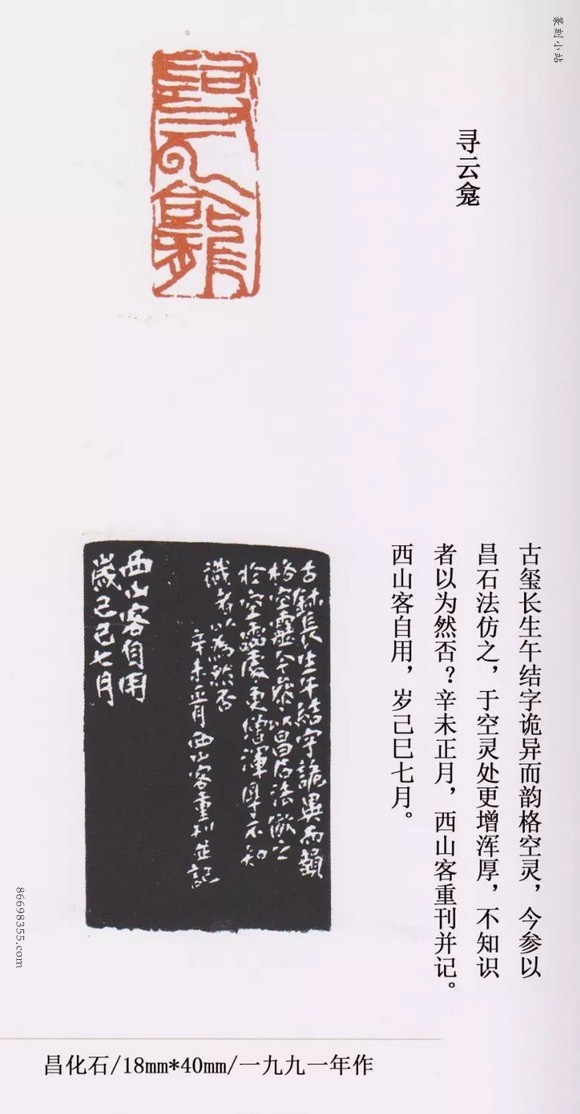 篆刻小站
寻云龛
尋云龕
古玺长生午结字诡异而韵格空灵，今参以
昌石法仿之，于空灵处更增浑厚，不知识
者以为然否？辛未正月，西山客重刊并记。
西山客自用，岁己巳七月。
古鉨長生午結字詭異而韻
格空靈今參以昌石法倣之
於空靈處更增渾厚不知
識者以為然否
辛未正月西山客重刊並記
西山客自用
歲己巳七月
86698355.com
昌化石/18mm*40mm/一九九一年作